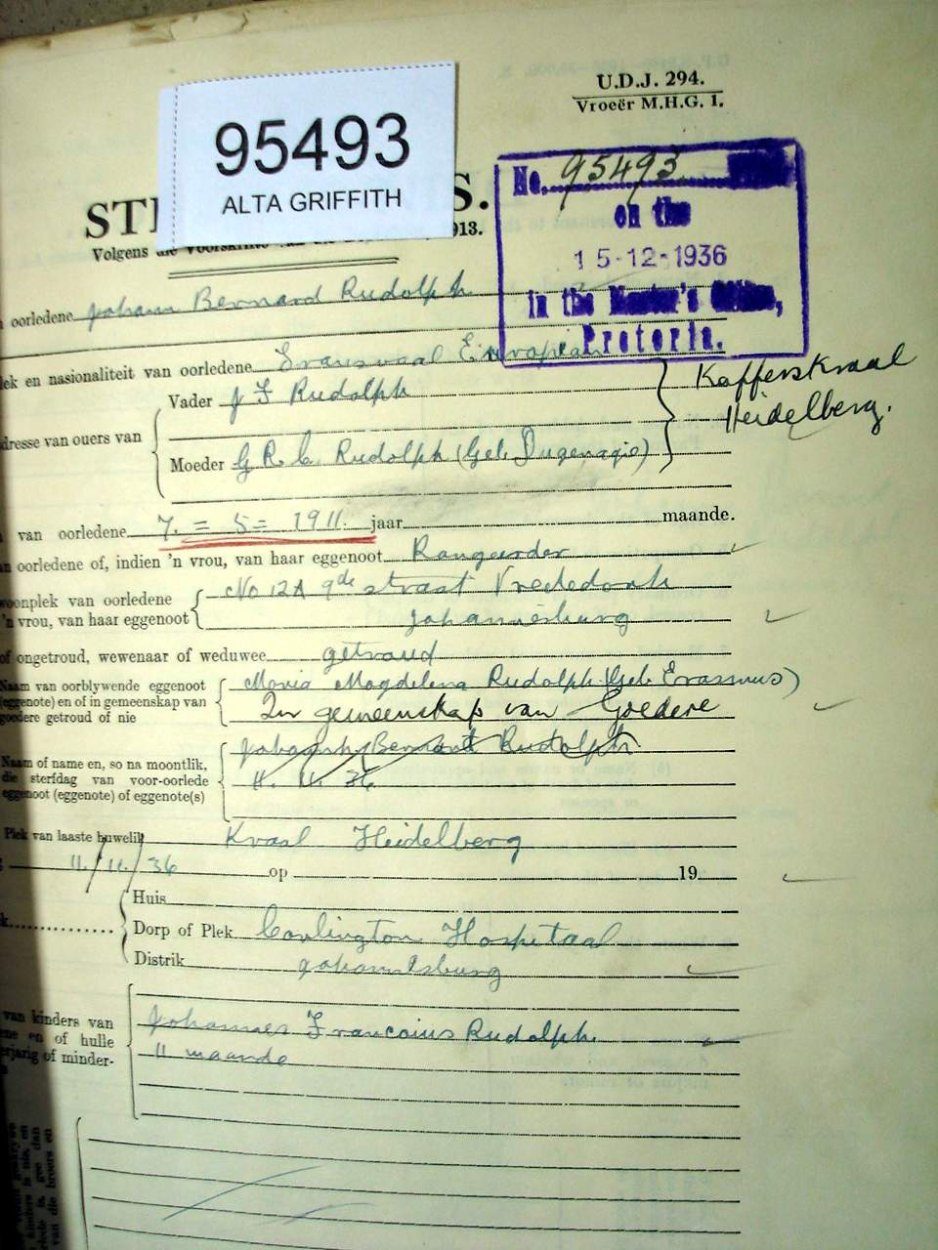 U.D.J. 294.
Vroeër M.H.G. 1.
95493
ALTA GRIFFITH
No. 95493
on the
15-12-1936
in the Master's Office,
Pretoria.
ST S.
Volgens die 1913.
oorledene Johann Bernard Rudolph
en nasionaliteit van oorledene Transvaal European
Vader J F Rudolph
Kafferskraal
Heidelberg.
dresse van ouers van
Moeder G R C Rudolph (Geb. )
van oorledene 7. = 5 = 1911. jaar maande.
oorledene of, indien 'n vrou, van haar eggenoot Rangeerder
woonplek van oorledene No 12A 9de straat Vrededorh
'n vrou, van haar eggenoot Johannesburg
of ongetroud, wewenaar of weduwee getroud
Naam van oorblywende eggenoot Maria Magdelena Rudolph (Geb. Erasmus)
(eggenote) en of in gemeenskap van In gemeenskap van Goedere
goedere getroud of nie
Naam of name en, so na moontlik, Johann Bernard Rudolph
die sterfdag van voor-oorlede 11. 11. 36
eggenoot (eggenote) of eggenote(s)
Plek van laaste huwelik Kraal Heidelberg
11/11/36 op 19
Huis
Dorp of Plek Hospetaal
Distrik Johannesburg
van kinders van
en of hulle Johannes Francouis Rudolph.
of minder- 11 maande